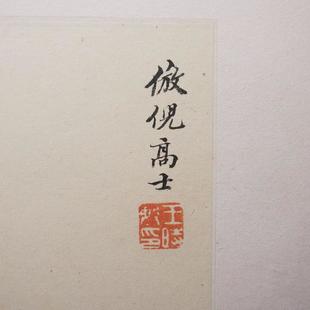 倣倪高士
王時敏印